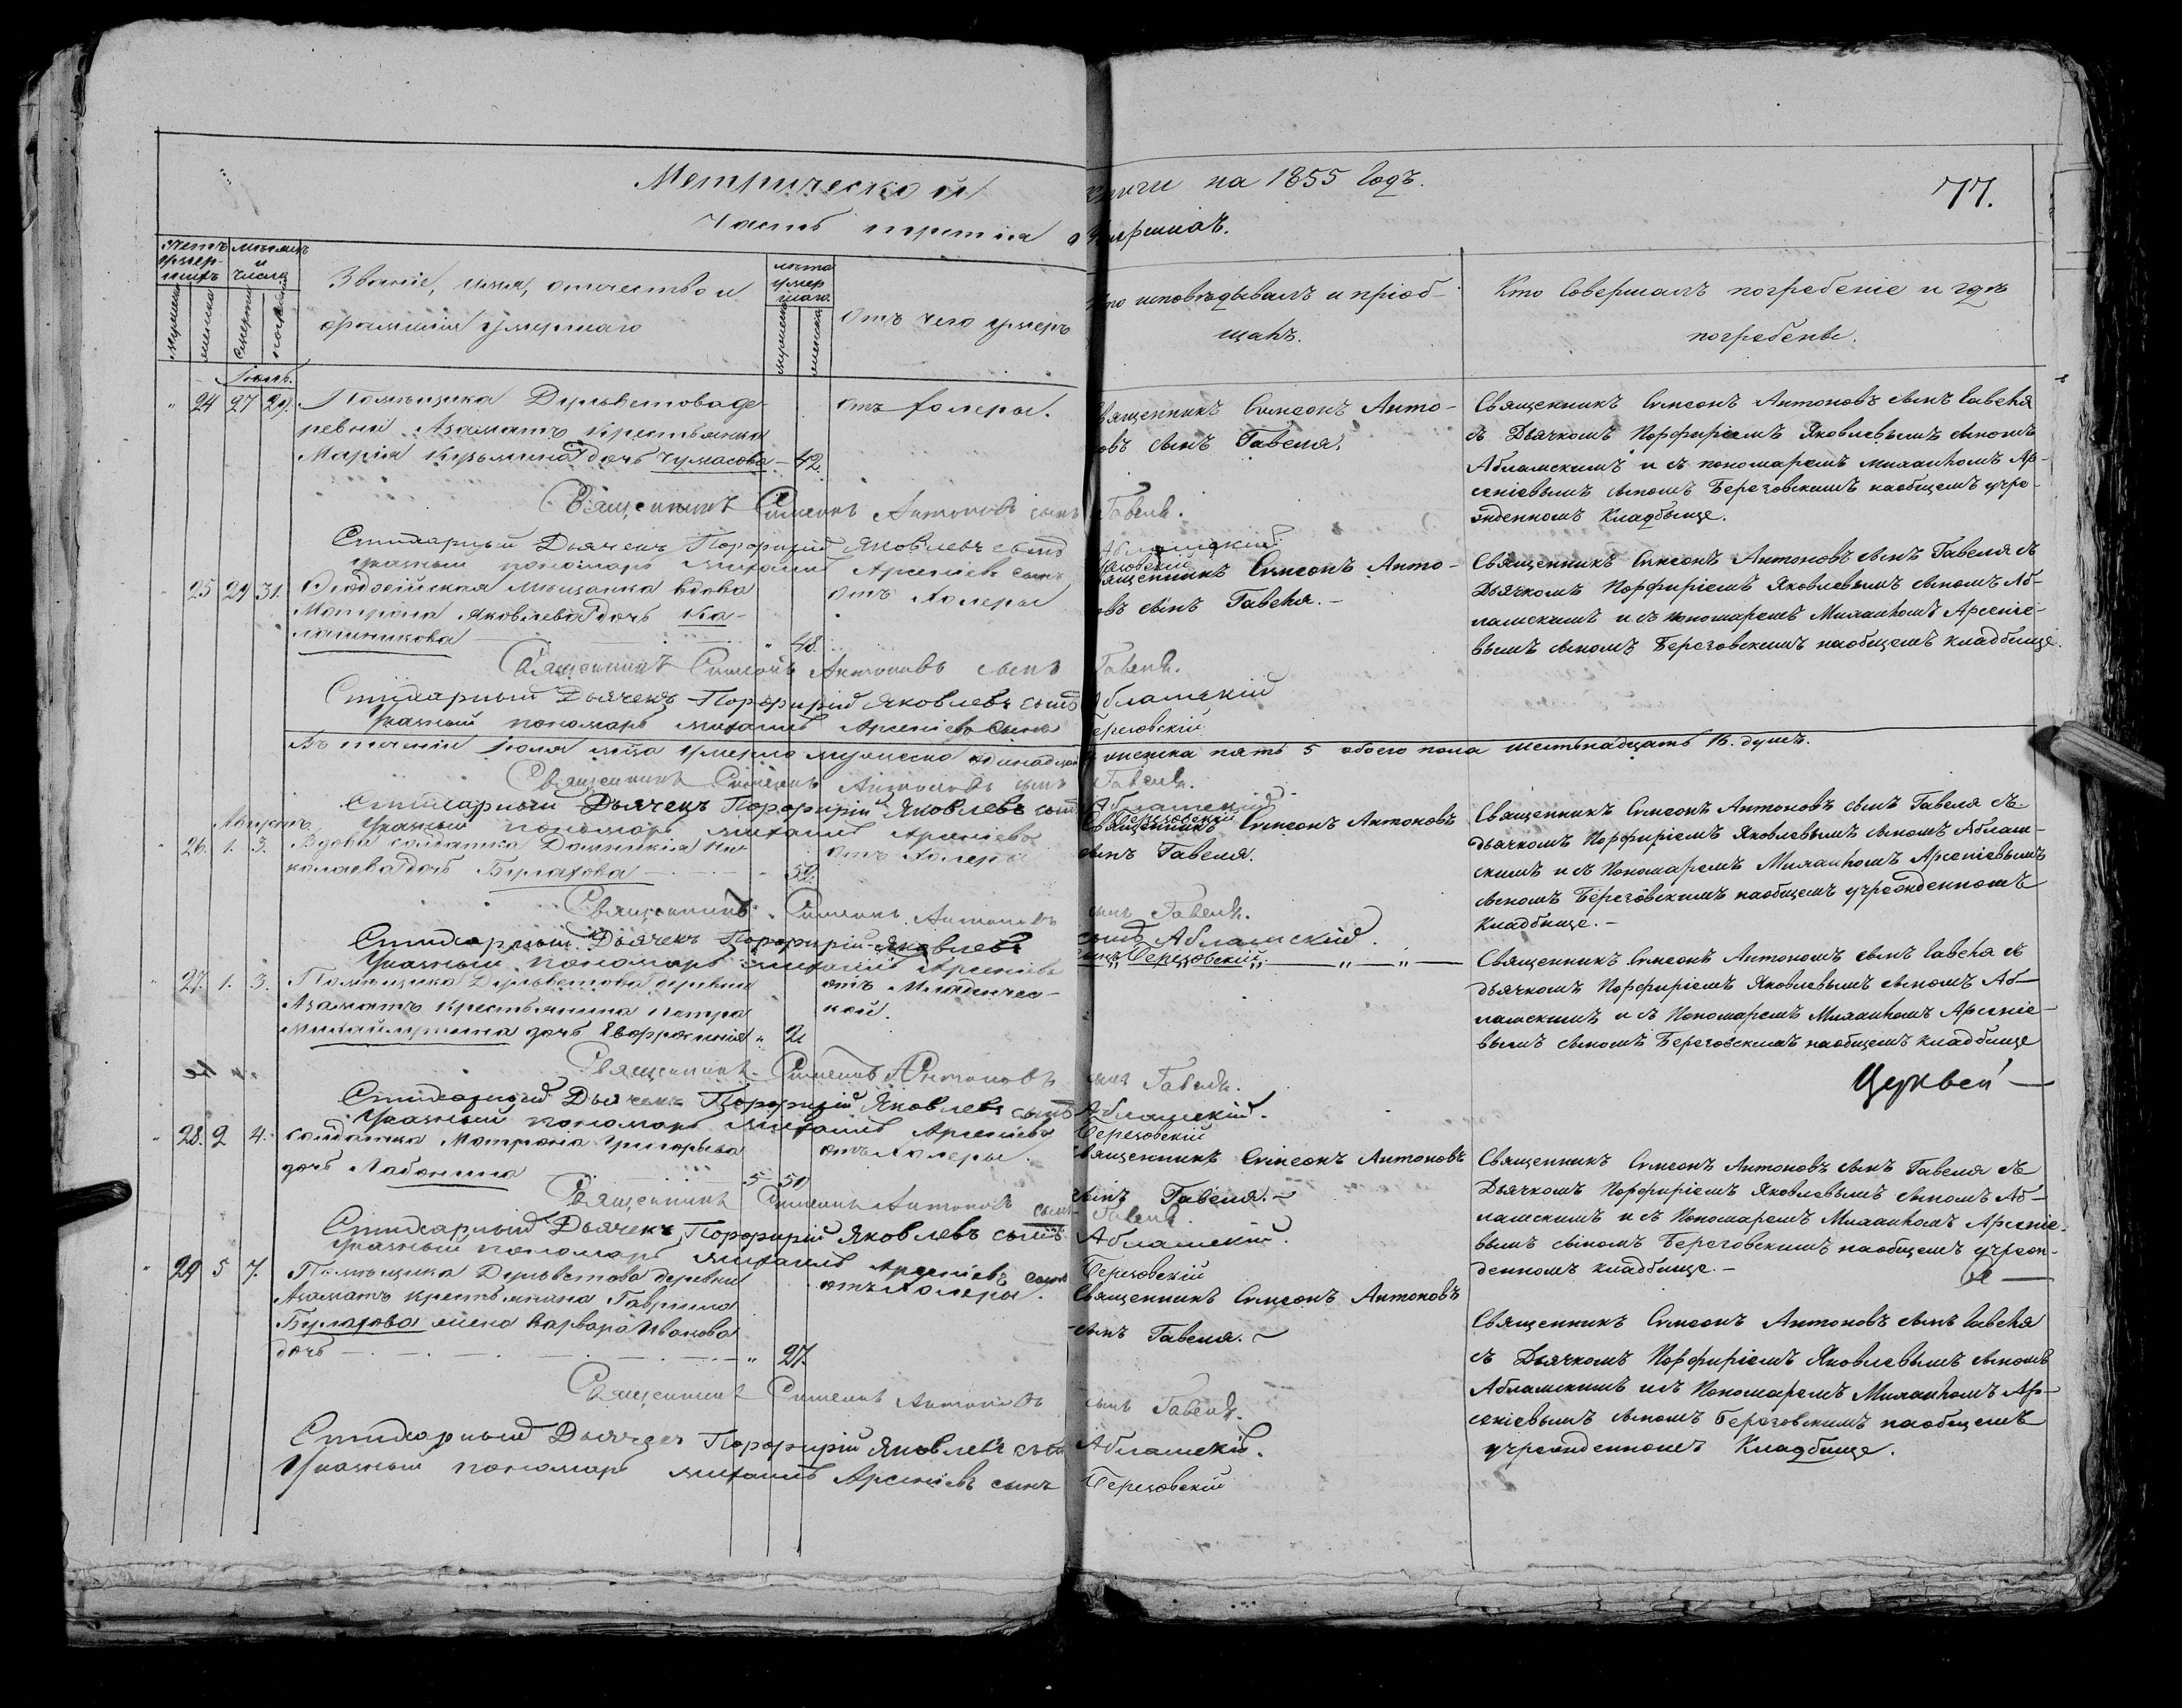 Метрической книги на 1855 Годъ.
77.
Часть третія о умершихъ.
Счетъ умер-
шихъ
Мѣсяцъ
и
число
Званіе, имя, отчество и
фамилія умершаго
лѣта
умер
шаго.
Отъ чего умеръ
Кто исповѣдывалъ и пріоб-
щалъ.
Кто Совершалъ погребеніе и гдѣ
погребены.
Мужеска
женска
Смерти
погребенія
мужеска
женска
Іюль.
" 24 27 29. Помѣщика Дульветова де-
ревни Азаматъ крестьянка
Марія Кузьмина дочь Чумасова - 42.
отъ холеры.
Священникъ Симеонъ Анто-
новъ сынъ Гавеля.
Священникъ Симеонъ Антоновъ сынъ Гавеля
съ Дьячкомъ Порфиріемъ Яковлевымъ сыномъ
Абламскимъ и съ пономаремъ Михаиломъ Ар-
сеніевымъ сыномъ Береговскимъ на общемъ учре-
жденномъ Кладбище.
Священникъ Симеонъ Антоновъ сынъ Гавеля.
Стихарный Дьячекъ Порфирій Яковлевъ сынъ Абламскій.
Указный пономарь Михаилъ Арсеніевъ сынъ
" 25 29 31. Ѳеодосійская мѣщанка вдова
Матрона Яковлева дочь Ка-
лашникова " 48.
отъ Холеры
Священникъ Симеонъ Анто-
новъ сынъ Гавеля. -
Священникъ Симеонъ Антоновъ сынъ Гавеля съ
Дьячкомъ Порфиріемъ Яковлевымъ сыномъ Аб-
ламскимъ и съ пономаремъ Михаиломъ Арсеніе-
вымъ сыномъ Береговскимъ на общемъ кладбище.
Священникъ Симеонъ Антоновъ сынъ Гавеля.
Стихарный Дьячекъ Порфирій Яковлевъ сынъ Абламскій
Указный пономарь Михаилъ Арсеніевъ сынъ Береговскій
Въ теченіи Іюля мца умерло мужеска одинадцать женска пять 5 обоего пола шестьнадцать 16. душъ.
Священникъ Симеонъ Антоновъ сынъ Гавеля.
Стихарный Дьячекъ Порфирій Яковлевъ сынъ Абламскій.
Указный пономарь Михаилъ Арсеніевъ Береговскій
Августъ
" 26. 1. 3. Вдова солдатка Домникія Ни-
колаева дочь Булахова " 52.
отъ Холеры
Священникъ Симеонъ Антоновъ
сынъ Гавеля.
Священникъ Симеонъ Антоновъ сынъ Гавеля съ
дьячкомъ Порфиріемъ Яковлевымъ сыномъ Аблам-
скимъ и съ Пономаремъ Михаиломъ Арсеніевымъ
сыномъ Береговскимъ на общемъ учрежденномъ
Кладбище. -
Священникъ Симеонъ Антоновъ сынъ Гавеля.
Стихарный Дьячекъ Порфирій Яковлевъ сынъ Абламскій.
Указный пономарь Михаилъ Арсеніевъ сынъ Береговскій
" 27. 1. 3. Помѣщика Дульветова деревни
Азаматъ крестьянина Петра
дочь Евфросинія " 2
отъ Младенчес-
кой.
Священникъ Симеонъ Антоновъ сынъ Гавеля съ
дьячкомъ Порфиріемъ Яковлевымъ сыномъ Аб-
ламскимъ и съ Пономаремъ Михаиломъ Арсеніе-
вымъ сыномъ Береговскимъ на общемъ кладбище
Церквей
Священникъ Симеонъ Антоновъ сынъ Гавеля.
Стихарный Дьячекъ Порфирій Яковлевъ сынъ Абламскій.
Указный пономарь Михаилъ Арсеніевъ Береговскій
" 28. 2 4. Солдатка Матрона Григорьева
дочь Лабонина 50
отъ Холеры.
Священникъ Симеонъ Антоновъ
сынъ Гавеля. -
Священникъ Симеонъ Антоновъ сынъ Гавеля съ
Дьячкомъ Порфиріемъ Яковлевымъ сыномъ Аб-
ламскимъ и съ Пономаремъ Михаиломъ Арсеніе-
вымъ сыномъ Береговскимъ на общемъ учреж-
денномъ кладбище. -
Священникъ Симеонъ Антоновъ сынъ Гавеля.
Стихарный Дьячекъ Порфирій Яковлевъ сынъ Абламскій.
Указный пономарь Михаилъ Арсеніевъ сынъ Береговскій
" 29 5 7. Помѣщика Дульветова деревни
Азаматъ крестьянина Гаврилы
Булахова жена Варвара Иванова
дочь " 27.
отъ Холеры.
Священникъ Симеонъ Антоновъ
сынъ Гавеля. -
Священникъ Симеонъ Антоновъ сынъ Гавеля
съ Дьячкомъ Порфиріемъ Яковлевымъ сыномъ
Абламскимъ и съ Пономаремъ Михаиломъ Ар-
сеніевымъ сыномъ Береговскимъ на общемъ
учрежденномъ Кладбище.
Священникъ Симеонъ Антоновъ сынъ Гавеля.
Стихарный Дьячекъ Порфирій Яковлевъ сынъ Абламскій.
Указный пономарь Михаилъ Арсеніевъ сынъ Береговскій